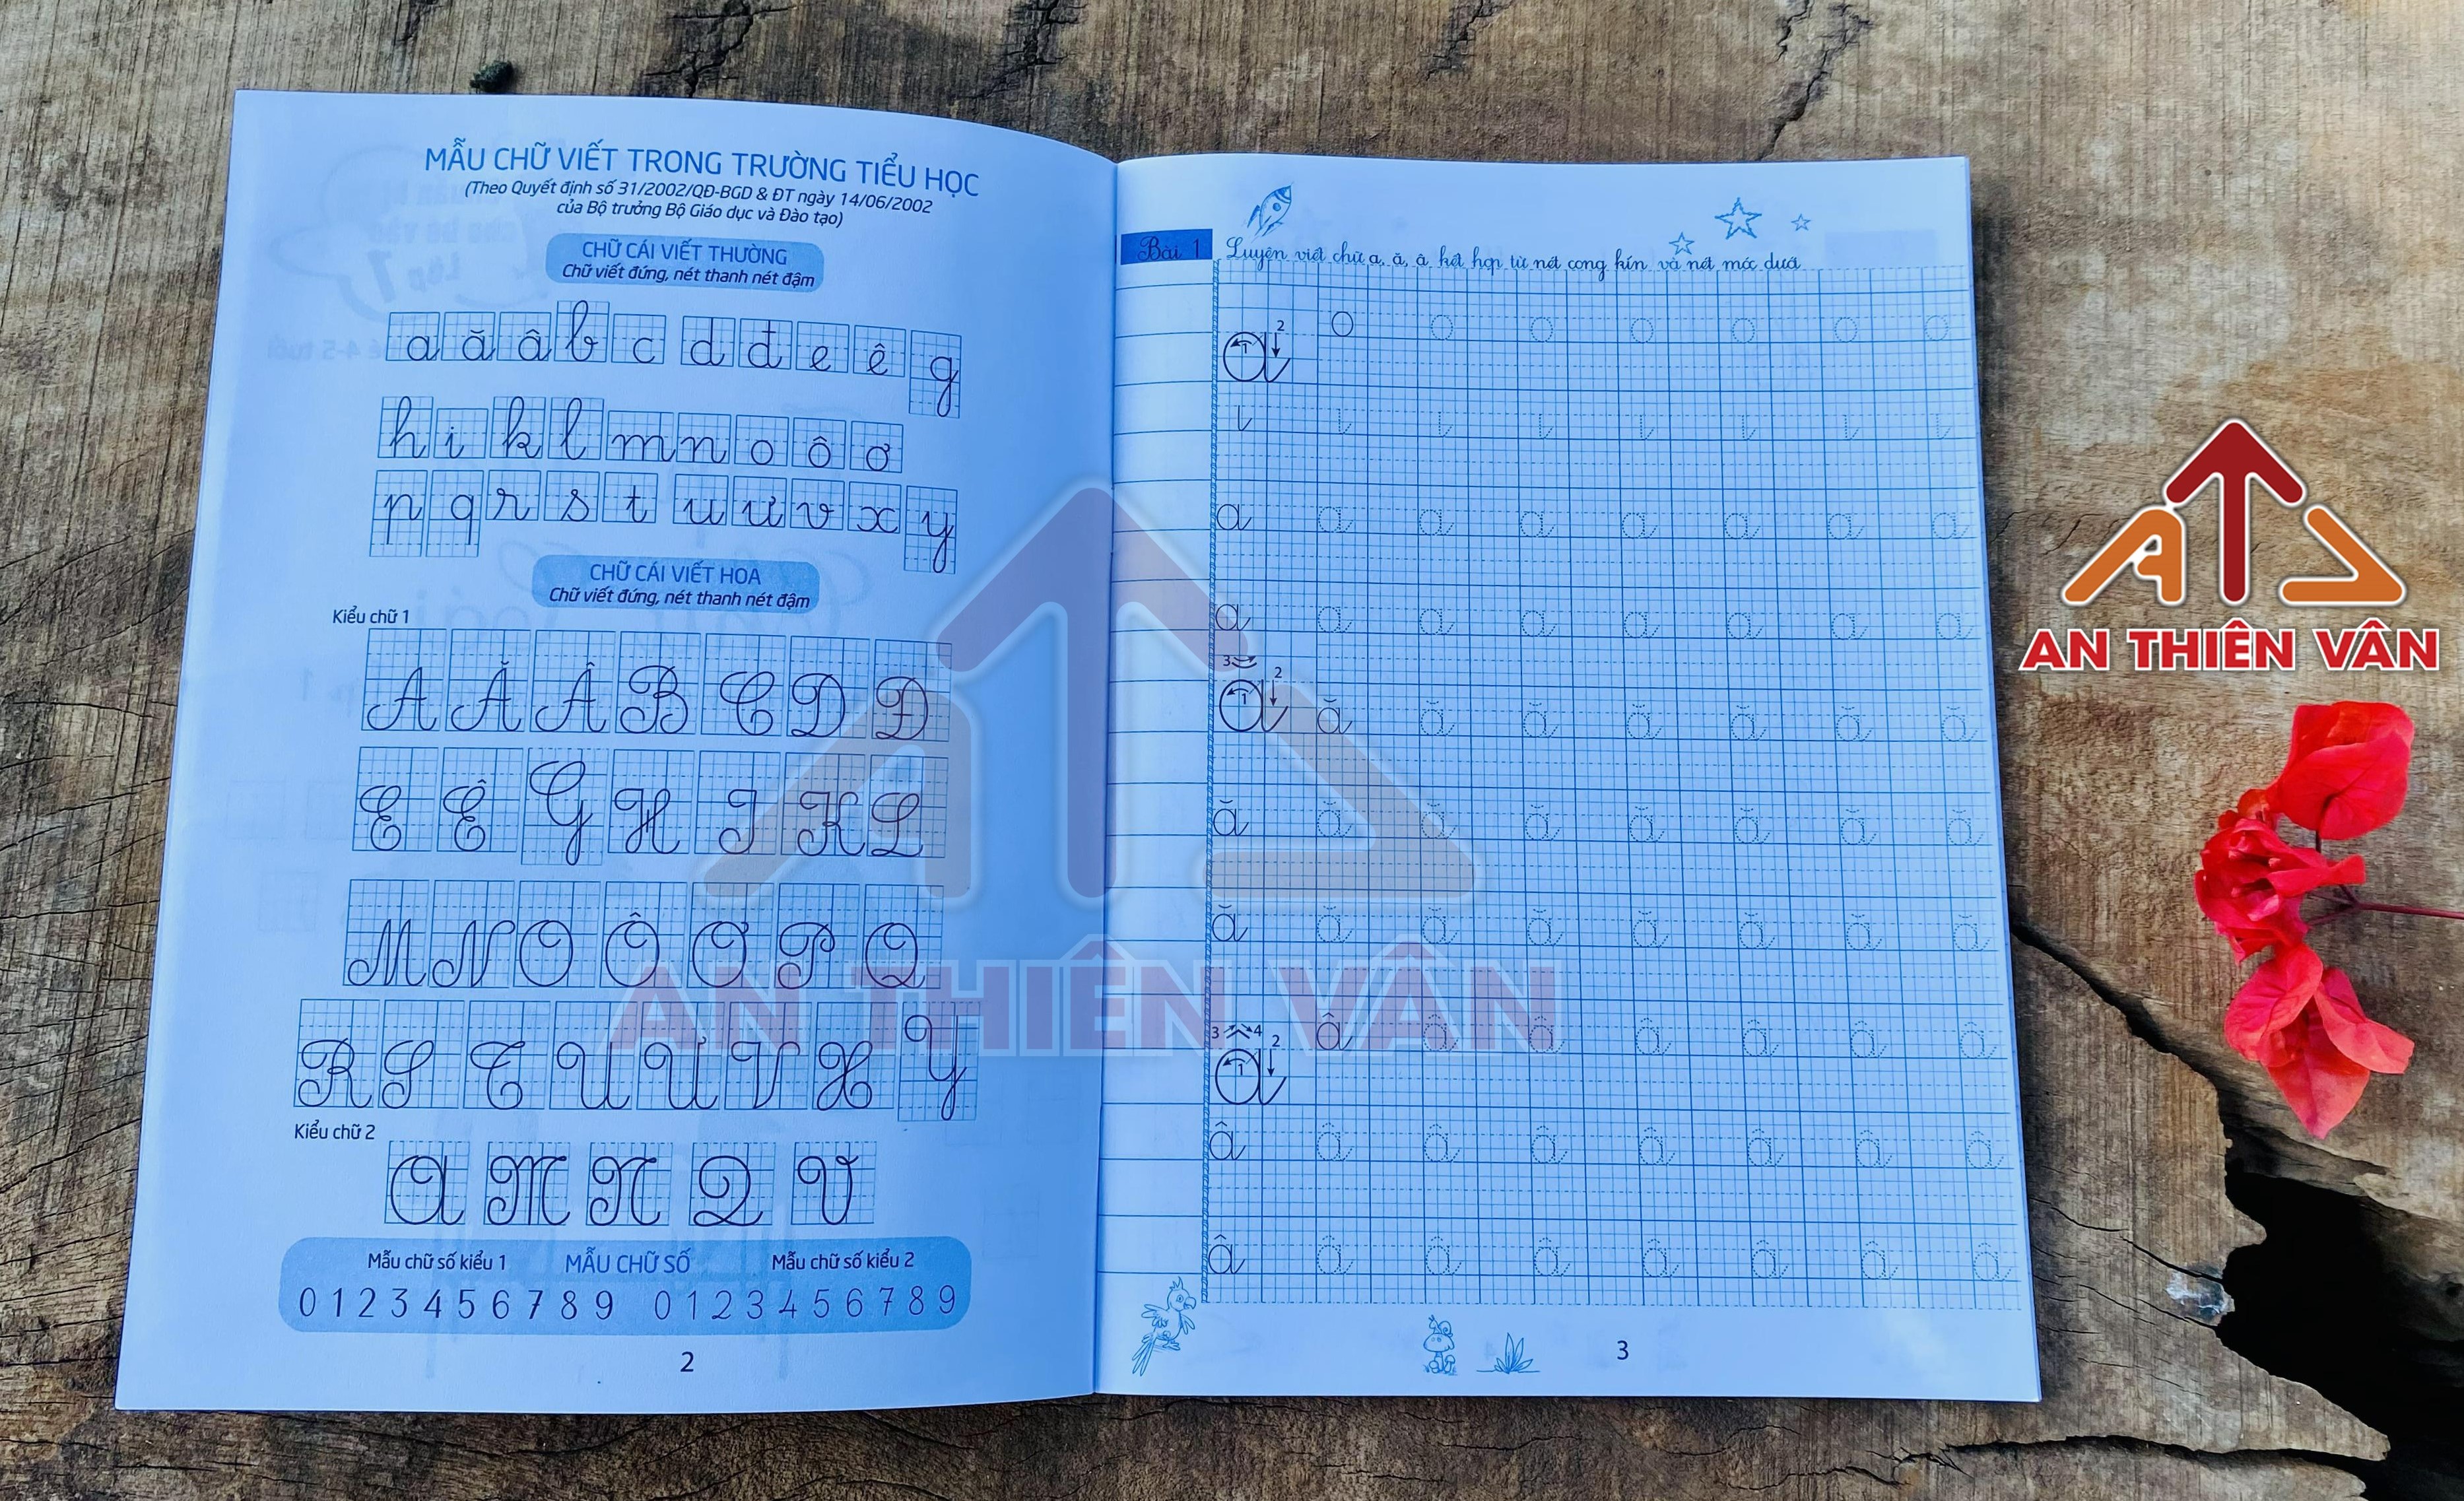 MẪU CHỮ VIẾT TRONG TRƯỜNG TIỂU HỌC
(Theo Quyết định số 31/2002/QĐ-BGD & ĐT ngày 14/06/2002
của Bộ trưởng Bộ Giáo dục và Đào tạo)
CHỮ CÁI VIẾT THƯỜNG
Chữ viết đứng, nét thanh nét đậm
a ă â b c d đ e ê g
h i k l m n o ô ơ
p q r s t u ư v x y
CHỮ CÁI VIẾT HOA
Chữ viết đứng, nét thanh nét đậm
Kiểu chữ 1
A Ă Â B C D Đ
E Ê G H I K L
M N O Ô Ơ P Q
R S T U Ư V X Y
Kiểu chữ 2
A M N Q V
Mẫu chữ số kiểu 1 MẪU CHỮ SỐ Mẫu chữ số kiểu 2
0 1 2 3 4 5 6 7 8 9 0 1 2 3 4 5 6 7 8 9
2
Bài 1 Luyện viết chữ a, ă, â kết hợp từ nét cong kín và nét móc dưới
a 1 2 o o o o o o o
ι ι ι ι ι ι ι ι
a a a a a a a a
a a a a a a a a
3 2
a 1 ă ă ă ă ă ă ă
ă ă ă ă ă ă ă ă
ă ă ă ă ă ă ă ă
3 4 2
a 1 â â â â â â â
â â â â â â â â
â â â â â â â â
3
AN THIÊN VÂN
AN THIÊN VÂN